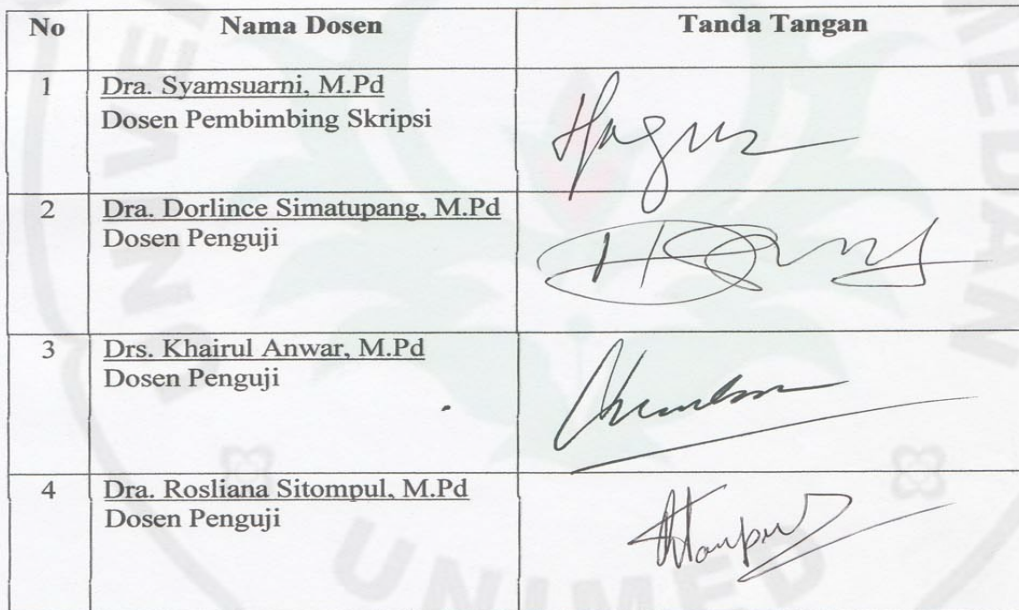 No Nama Dosen Tanda Tangan
1 Dra. Syamsuarni, M.Pd
Dosen Pembimbing Skripsi
2 Dra. Dorlince Simatupang, M.Pd
Dosen Penguji
3 Drs. Khairul Anwar, M.Pd
Dosen Penguji
4 Dra. Rosliana Sitompul, M.Pd
Dosen Penguji
UNIMED
MEDAN